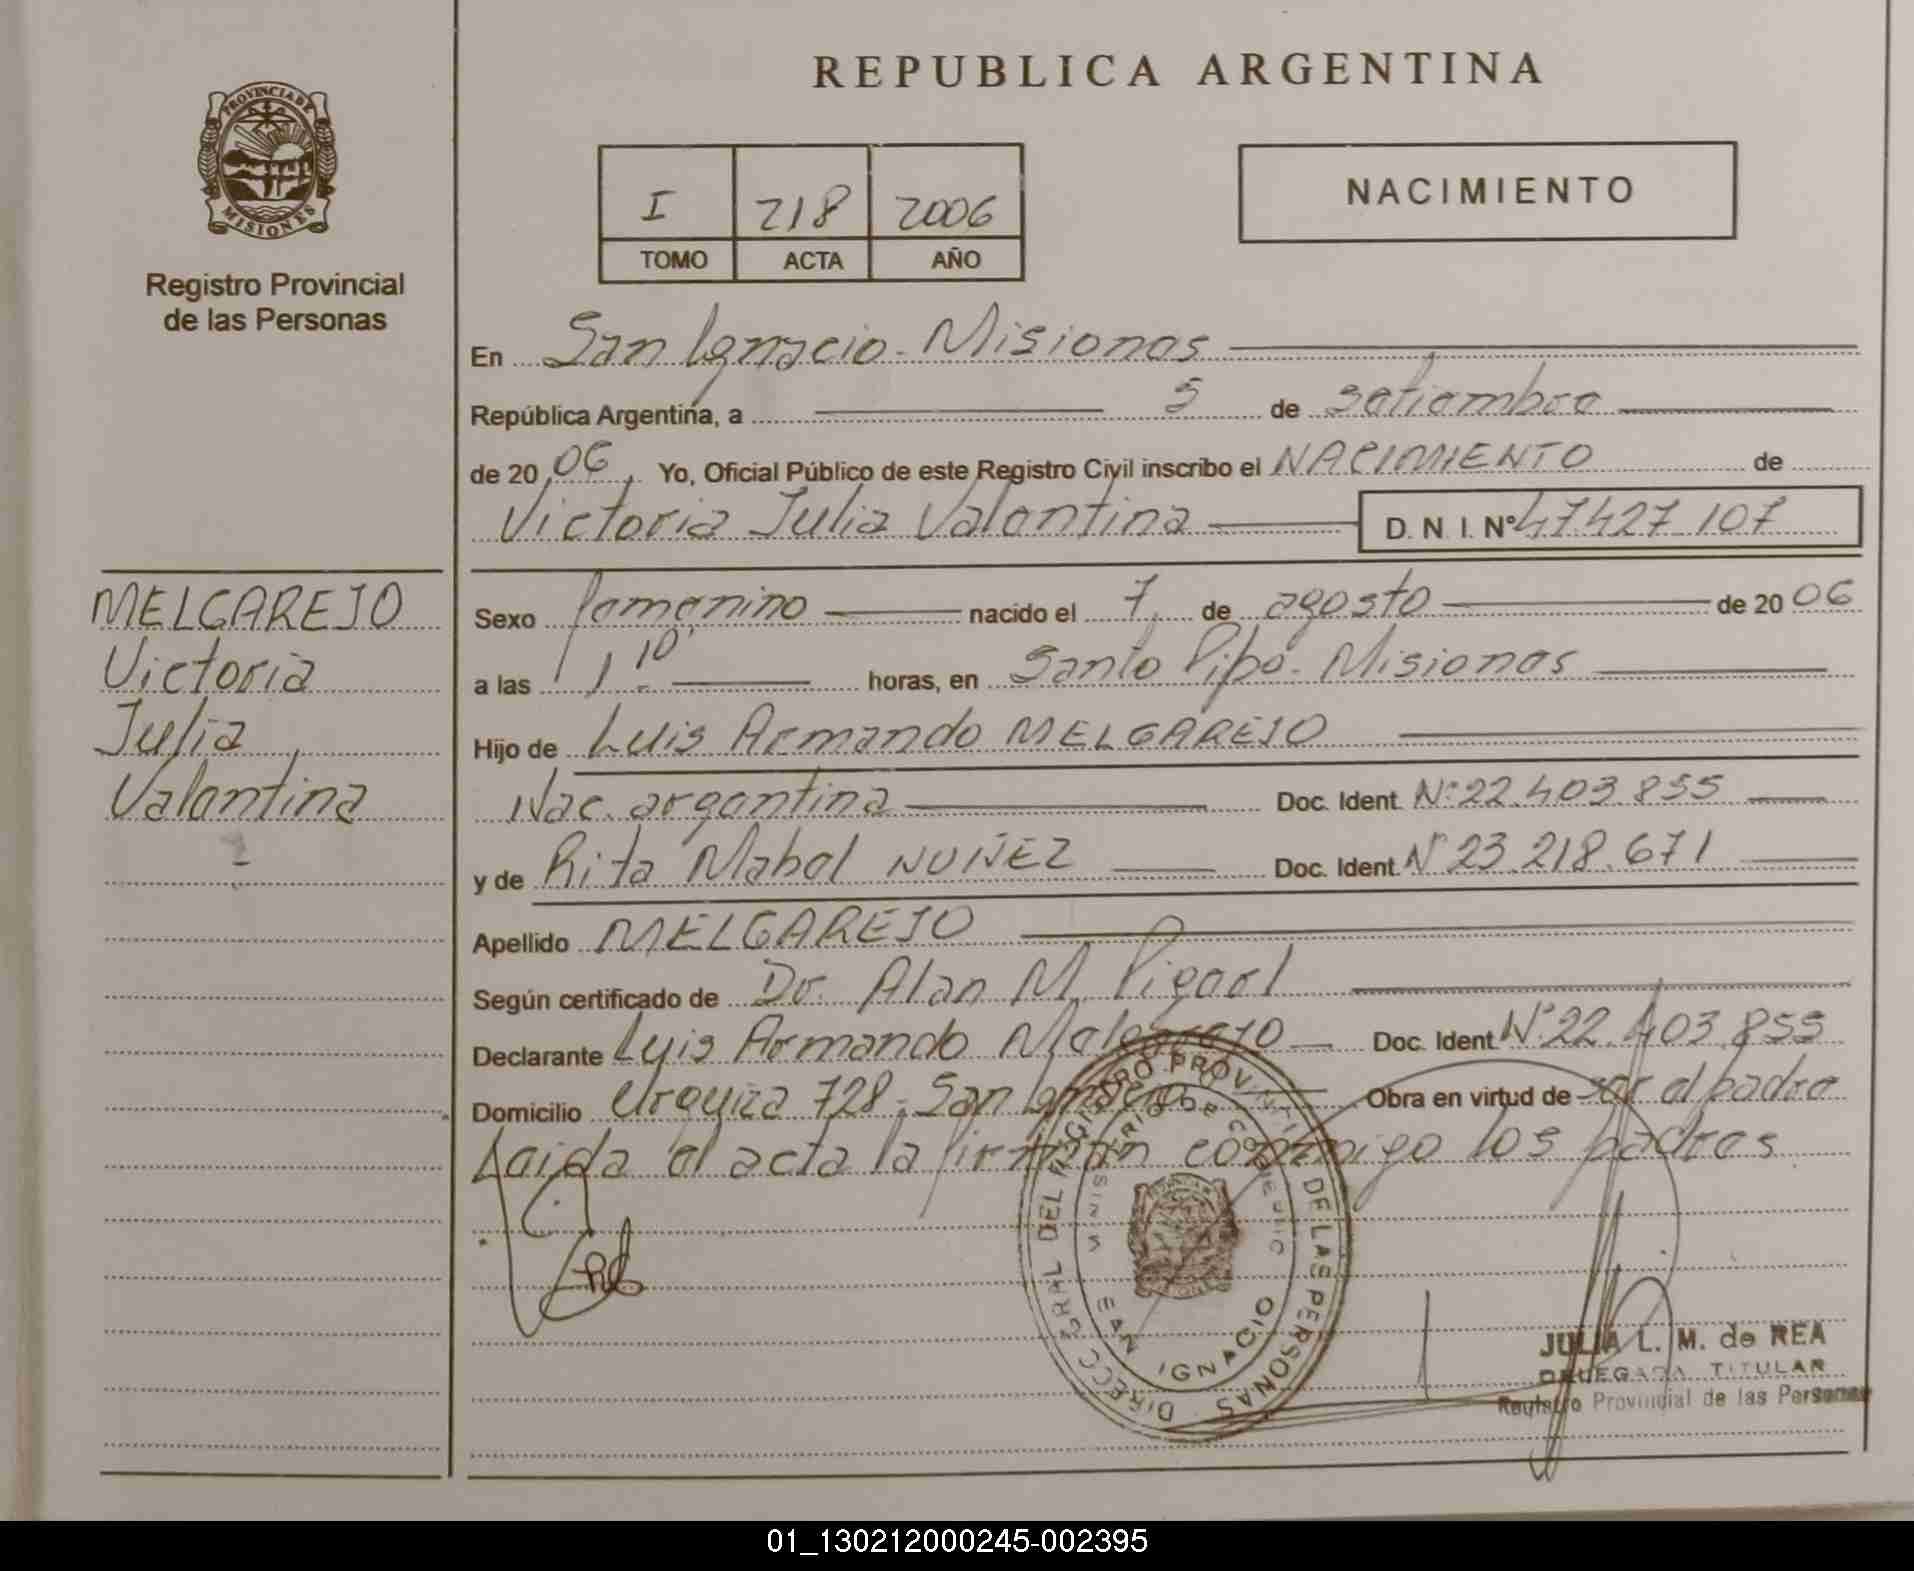 REPUBLICA ARGENTINA
PROVINCIA DE MISIONES
Registro Provincial
de las Personas
I 218 2006
TOMO ACTA AÑO
NACIMIENTO
En San Ignacio - Misiones
República Argentina, a 5 de setiembre
de 20 06, Yo, Oficial Público de este Registro Civil inscribo el NACIMIENTO de
Victoria Julia Valentina D. N. I. Nº 47.427.107
MELGAREJO
Victoria
Julia
Valentina
Sexo femenino nacido el 7 de agosto de 20 06
a las 1.10' horas, en Santo Pipó - Misiones
Hijo de Luis Armando MELGAREJO
Nac. argentina Doc. Ident. Nº 22.403.855
y de Rita Mabel NUÑEZ Doc. Ident. Nº 23.218.671
Apellido MELGAREJO
Según certificado de Dr. Alan M.
Declarante Luis Armando Melgarejo Doc. Ident. Nº 22.403.855
Domicilio Urquiza 728 - San Ignacio Obra en virtud de ser el padre
Leida el acta la firman conmigo los padres
DIRECC. GRAL. DEL REGISTRO PROVINCIAL DE LAS PERSONAS
MINISTERIO DE GOBIERNO
SAN IGNACIO
JULIA L. M. de REA
DELEGADA TITULAR
Registro Provincial de las Personas
01_130212000245-002395